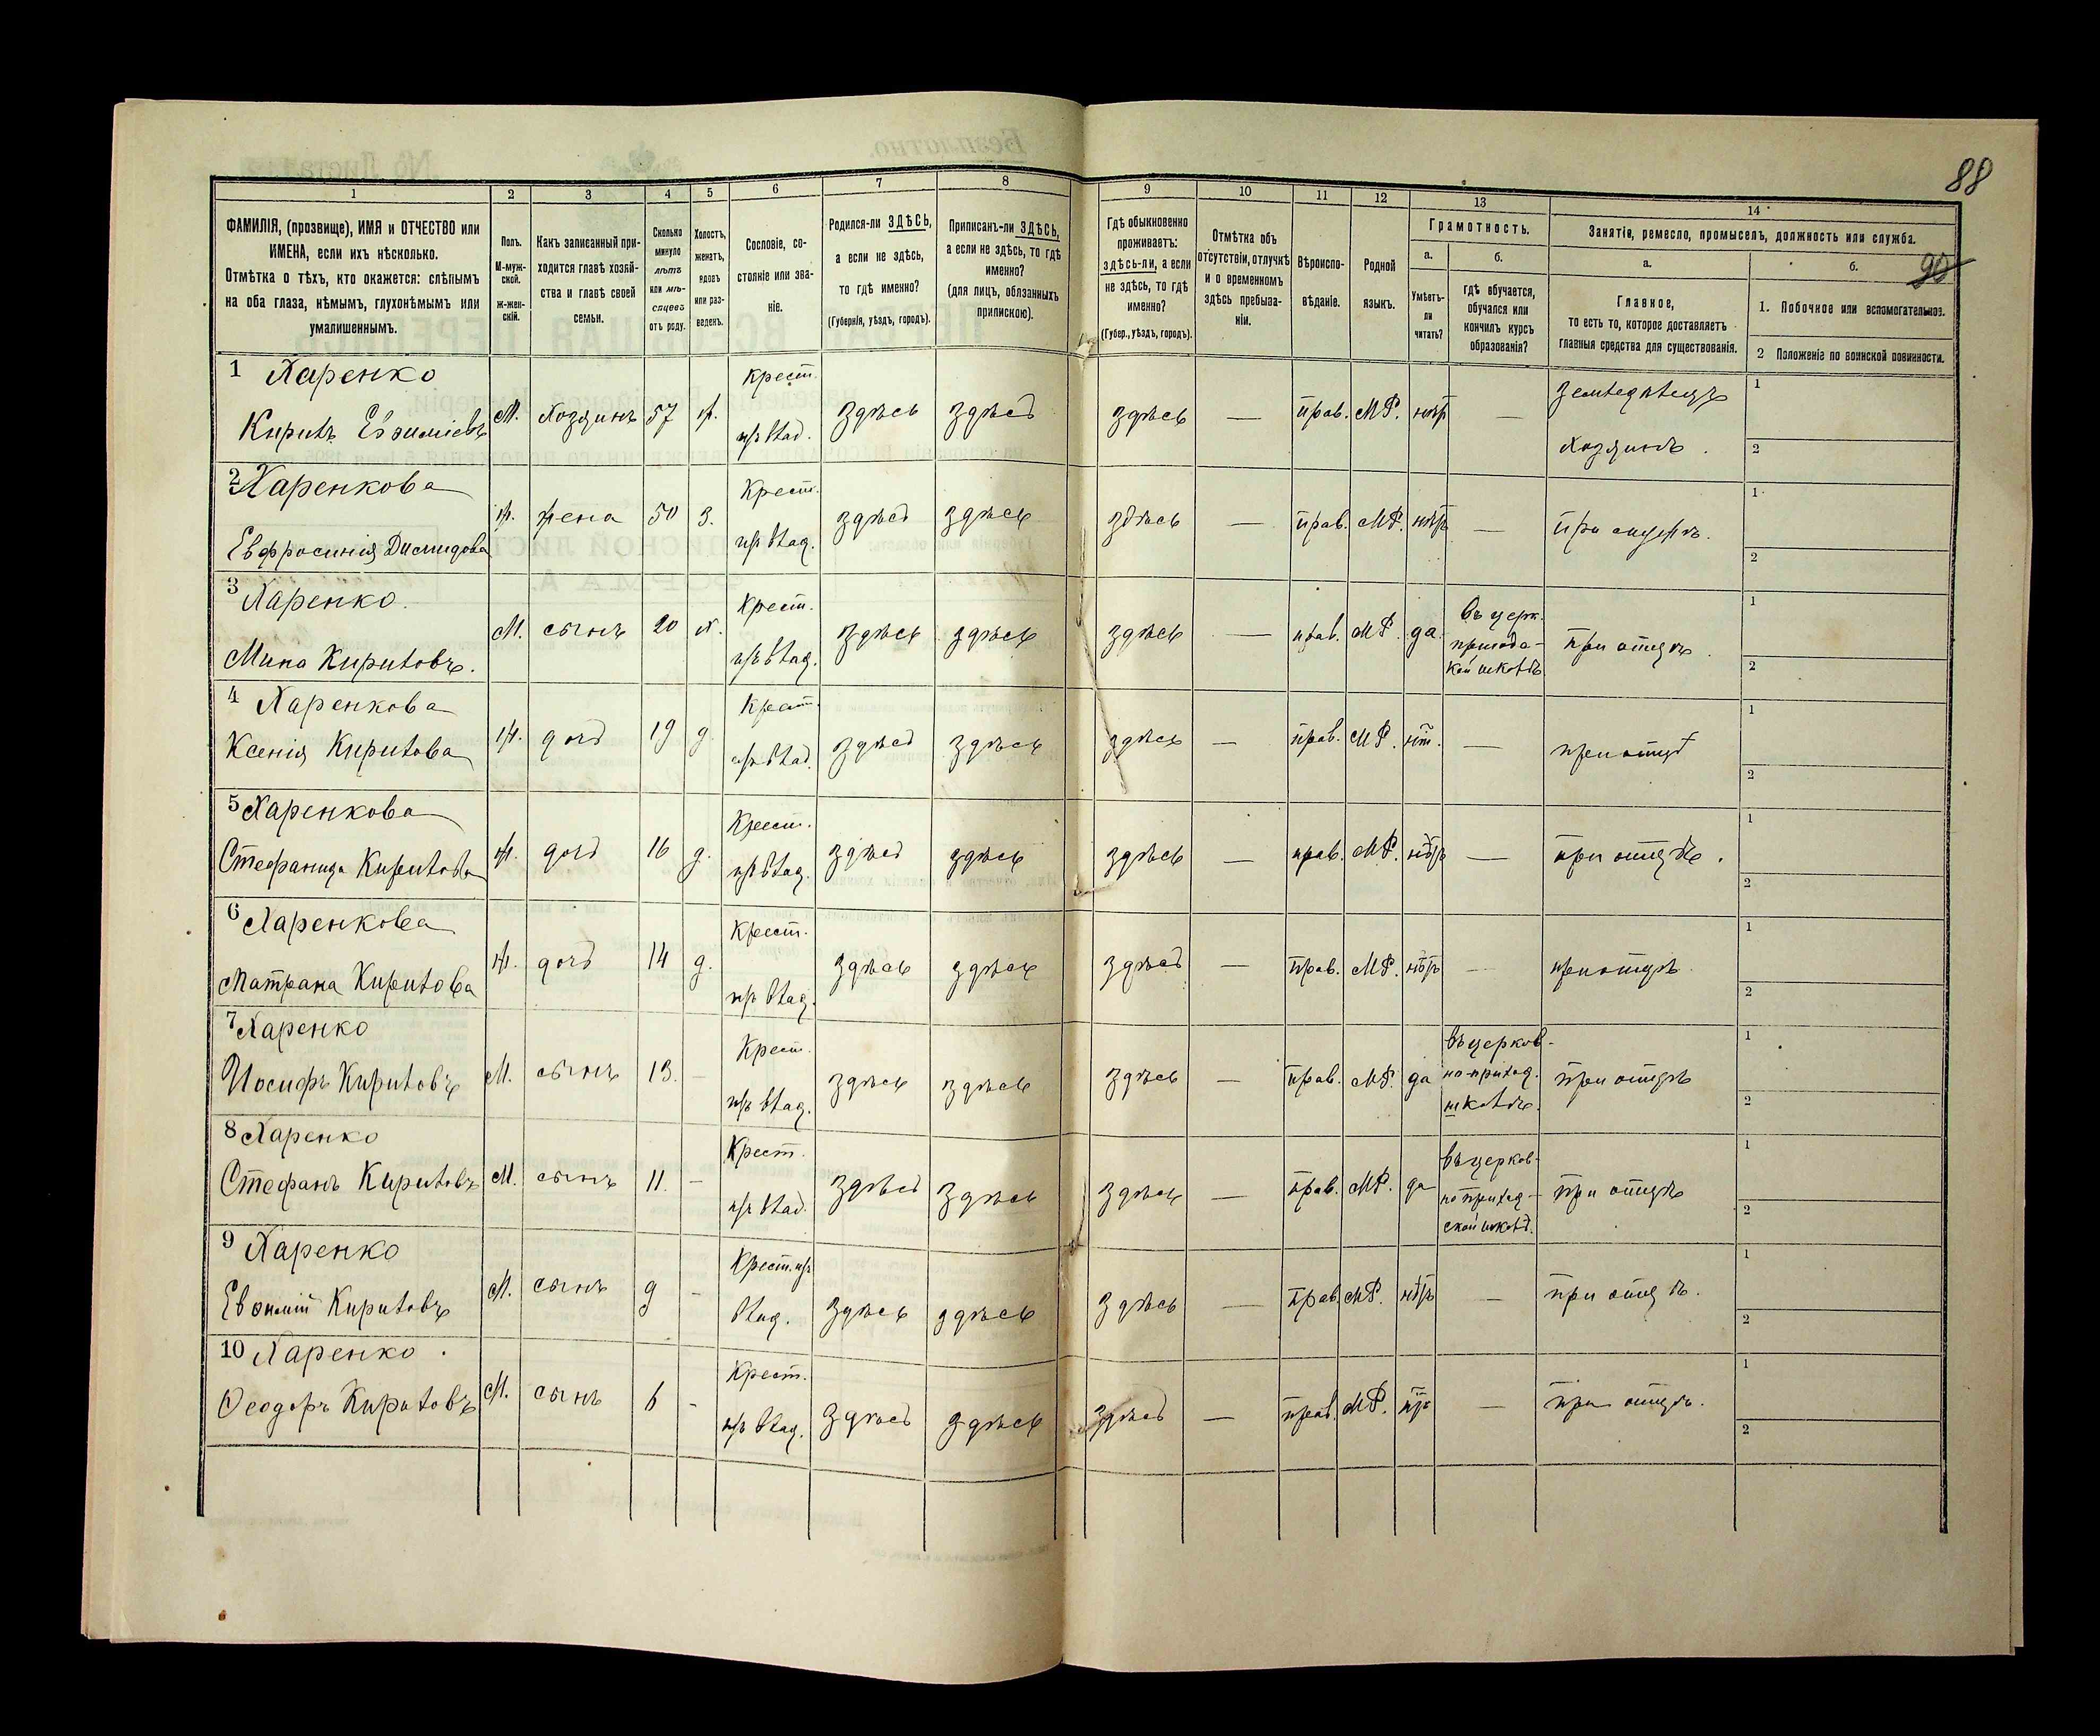 88
90
1
2
3
4
5
6
7
8
9
10
11
12
13
14
ФАМИЛІЯ, (прозвище), ИМЯ и ОТЧЕСТВО или
ИМЕНА, если ихъ нѣсколько.
Отмѣтка о тѣхъ, кто окажется: слѣпымъ
на оба глаза, нѣмымъ, глухонѣмымъ или
умалишеннымъ.
Полъ.
М-муж-
ской.
ж-жен-
скій.
Какъ записанный при-
ходится главѣ хозяй-
ства и главѣ своей
семьи.
Сколько
минуло
лѣтъ
или мѣ-
сяцевъ
отъ роду.
Холостъ,
женатъ,
вдовъ
или раз-
веденъ.
Сословіе, со-
стояніе или зва-
ніе.
Родился-ли ЗДѢСЬ,
а если не здѣсь,
то гдѣ именно?
(Губернія, уѣздъ, городъ).
Приписанъ-ли ЗДѢСЬ,
а если не здѣсь, то гдѣ
именно?
(для лицъ, обязанныхъ
припискою).
Гдѣ обыкновенно
проживаетъ:
здѣсь-ли, а если
не здѣсь, то гдѣ
именно?
(Губер., уѣздъ, городъ).
Отмѣтка объ
отсутствіи, отлучкѣ
и о временномъ
здѣсь пребыва-
ніи.
Вѣроиспо-
вѣданіе.
Родной
языкъ.
Грамотность.
а.
Умѣетъ-
ли
читать?
б.
гдѣ обучается,
обучался или
кончилъ курсъ
образованія?
Занятіе, ремесло, промыселъ, должность или служба.
а.
Главное,
то есть то, которое доставляетъ
главныя средства для существованія.
б.
1. Побочное или вспомогательное.
2 Положеніе по воинской повинности.
1 Харенко
Кирилъ Евѳиміевъ
М. хозяинъ 57 ж. Крест. изъ влад. здѣсь здѣсь здѣсь — прав. МР. нѣтъ — земледѣлецъ
хозяинъ.
1
2
2 Харенкова
Евфросинія Дисмидова
ж. жена 50 з. Крест. изъ влад. здѣсь здѣсь здѣсь — прав. МР. нѣтъ — при мужѣ.
1
2
3 Харенко.
Мина Кириловъ.
М. сынъ 20 х. Крест. изъ влад. здѣсь здѣсь здѣсь — прав. МР. да въ церк.
приход-
кой школѣ
при отцѣ.
1
2
4 Харенкова
Ксенія Кирилова
ж. дочь 19 д. Крест. изъ влад. здѣсь здѣсь здѣсь — прав. МР. нѣт. — при отцѣ
1
2
5 Харенкова
Стефанида Кирилова
ж. дочь 16 д. Крест. изъ влад. здѣсь здѣсь здѣсь — прав. МР. нѣтъ — при отцѣ.
1
2
6 Харенкова
Матрана Кирилова
ж. дочь 14 д. Крест. изъ влад. здѣсь здѣсь здѣсь — прав. МР. нѣтъ — при отцѣ
1
2
7 Харенко
Иосифъ Кириловъ
М. сынъ 13. — Крест. изъ влад. здѣсь здѣсь здѣсь — прав. МР. да въ церков-
но-приход.
школѣ.
при отцѣ
1
2
8 Харенко
Стефанъ Кириловъ
М. сынъ 11. — Крест. изъ влад. здѣсь здѣсь здѣсь — прав. МР. да въ церков-
но приход-
ской школѣ.
при отцѣ
1
2
9 Харенко
Евѳимій Кириловъ
М. сынъ 9 — Крест. изъ
влад. здѣсь здѣсь здѣсь — прав. МР. нѣтъ — при отцѣ.
1
2
10 Харенко.
Ѳеодоръ Кириловъ
М. сынъ 6 — Крест. изъ влад. здѣсь здѣсь здѣсь — прав. МР. нѣтъ — при отцѣ.
1
2